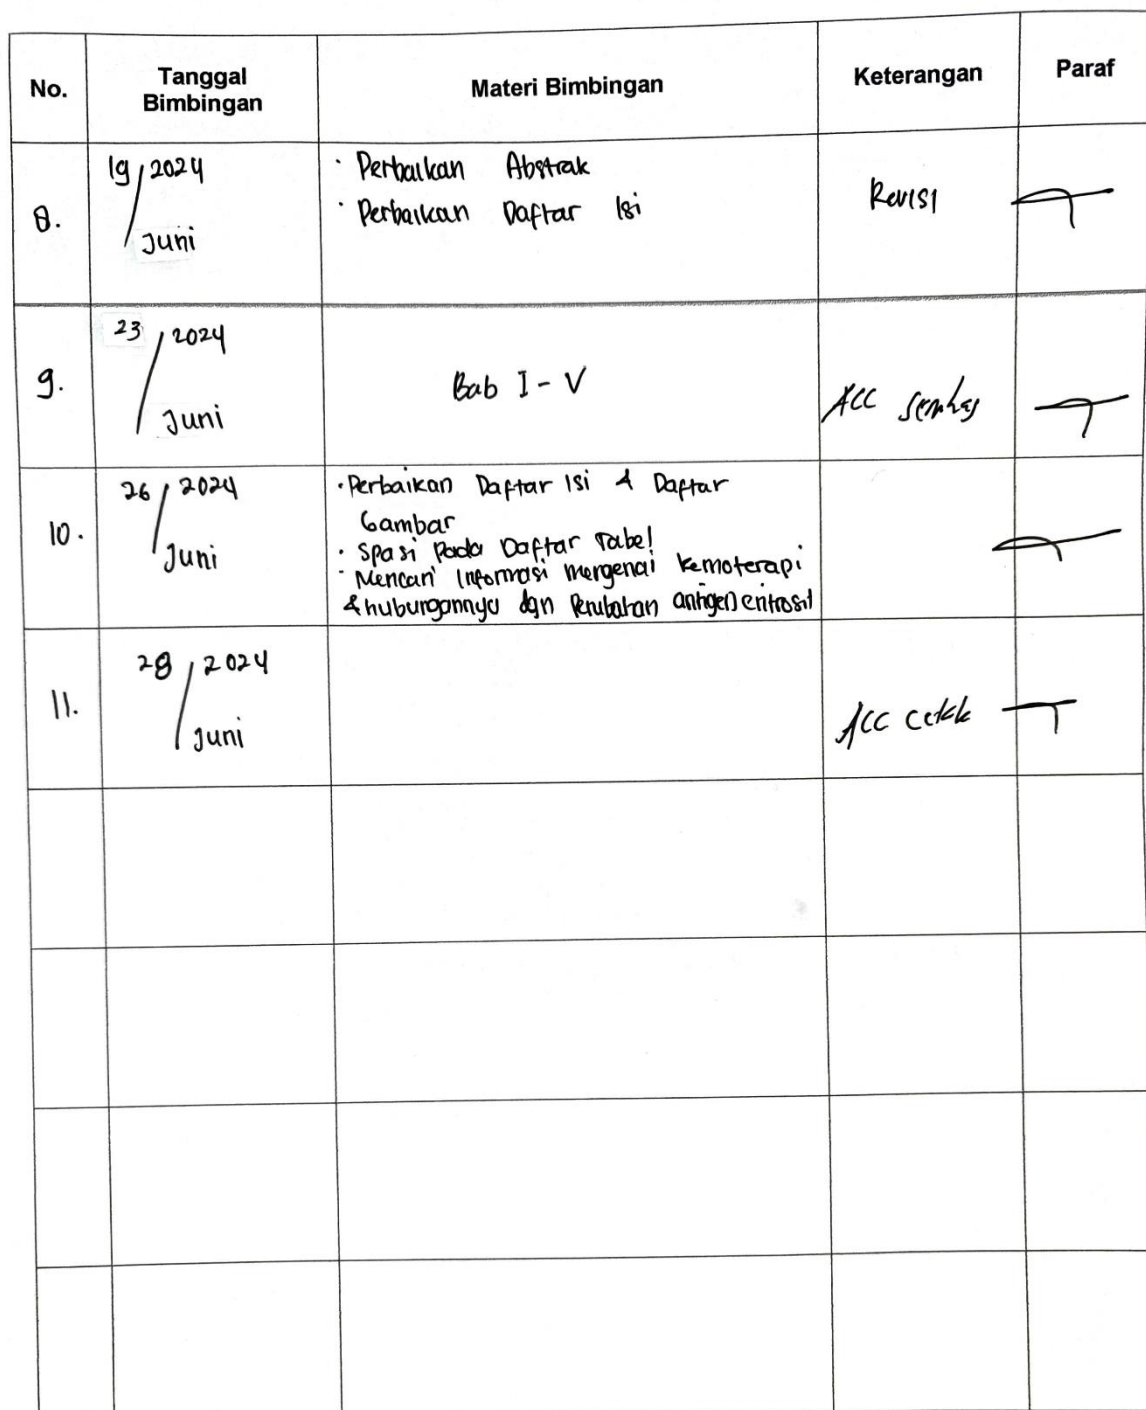 No. Tanggal Bimbingan Materi Bimbingan Keterangan Paraf
8. 19/2024 Juni
· Perbaikan Abstrak
· Perbaikan Daftar Isi
Revisi
9. 23/2024 Juni
Bab I - V
ACC semhas
10. 26/2024 Juni
· Perbaikan Daftar Isi & Daftar
Gambar
· Spasi Pada Daftar Tabel
· Mencari Informasi mengenai kemoterapi
& hubungannya dgn Perubahan antigen eritrosit
11. 28/2024 Juni
ACC cetak